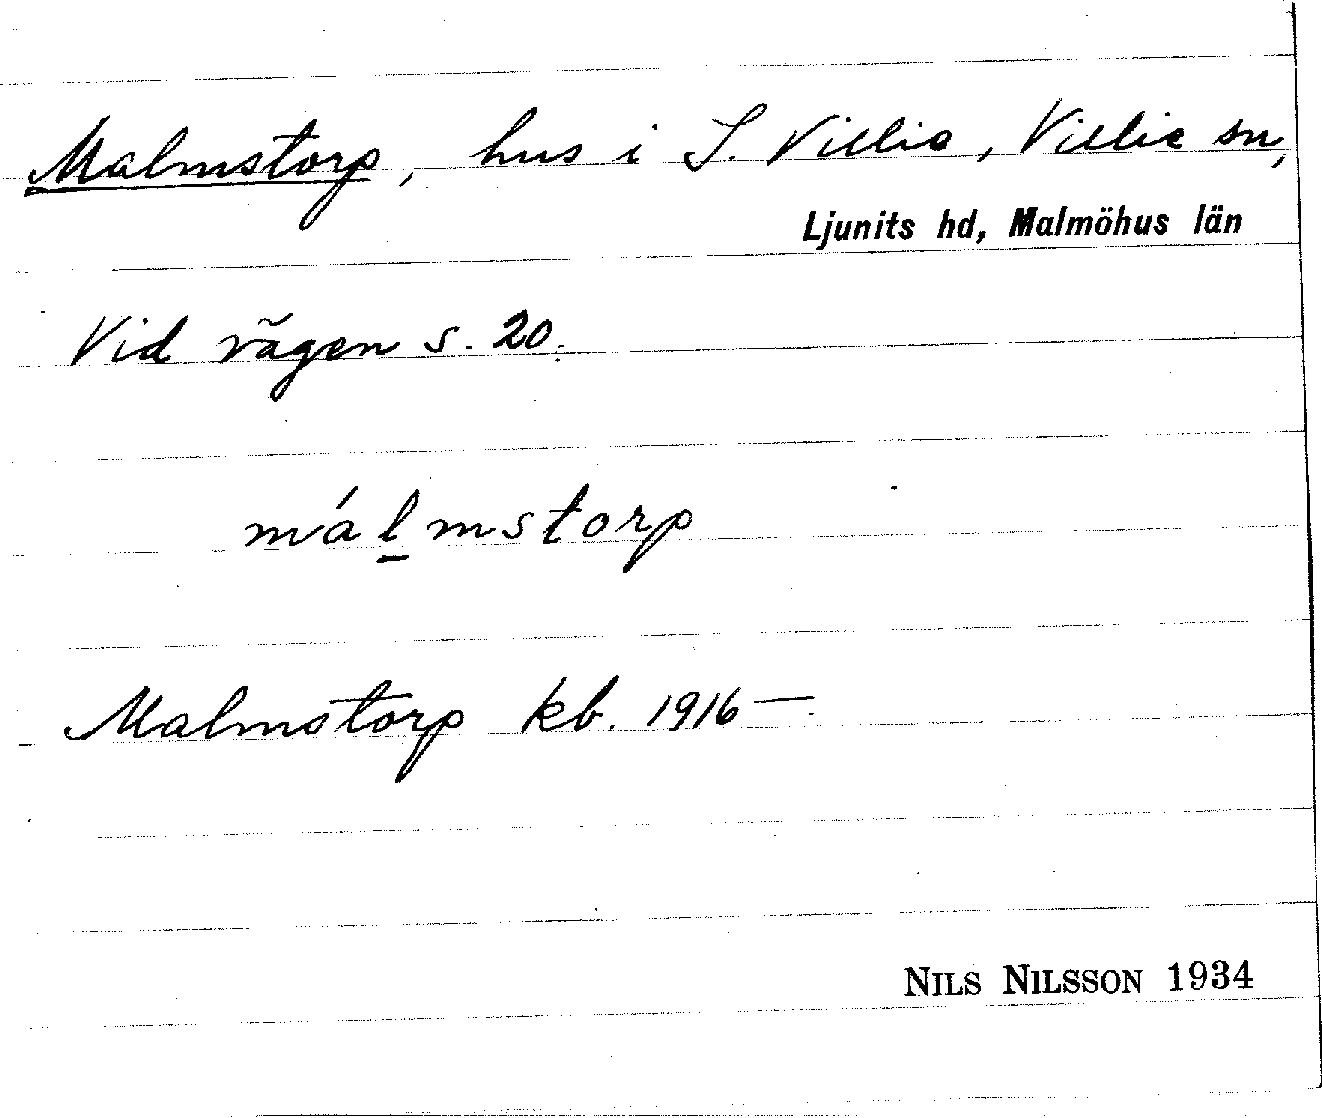 Malmstorp, hus i S. Villie, Villie sn,
Ljunits hd, Malmöhus län
Vid vägen s. 20.
málmstorp
Malmstorp kb. 1916 —.
NILS NILSSON 1934